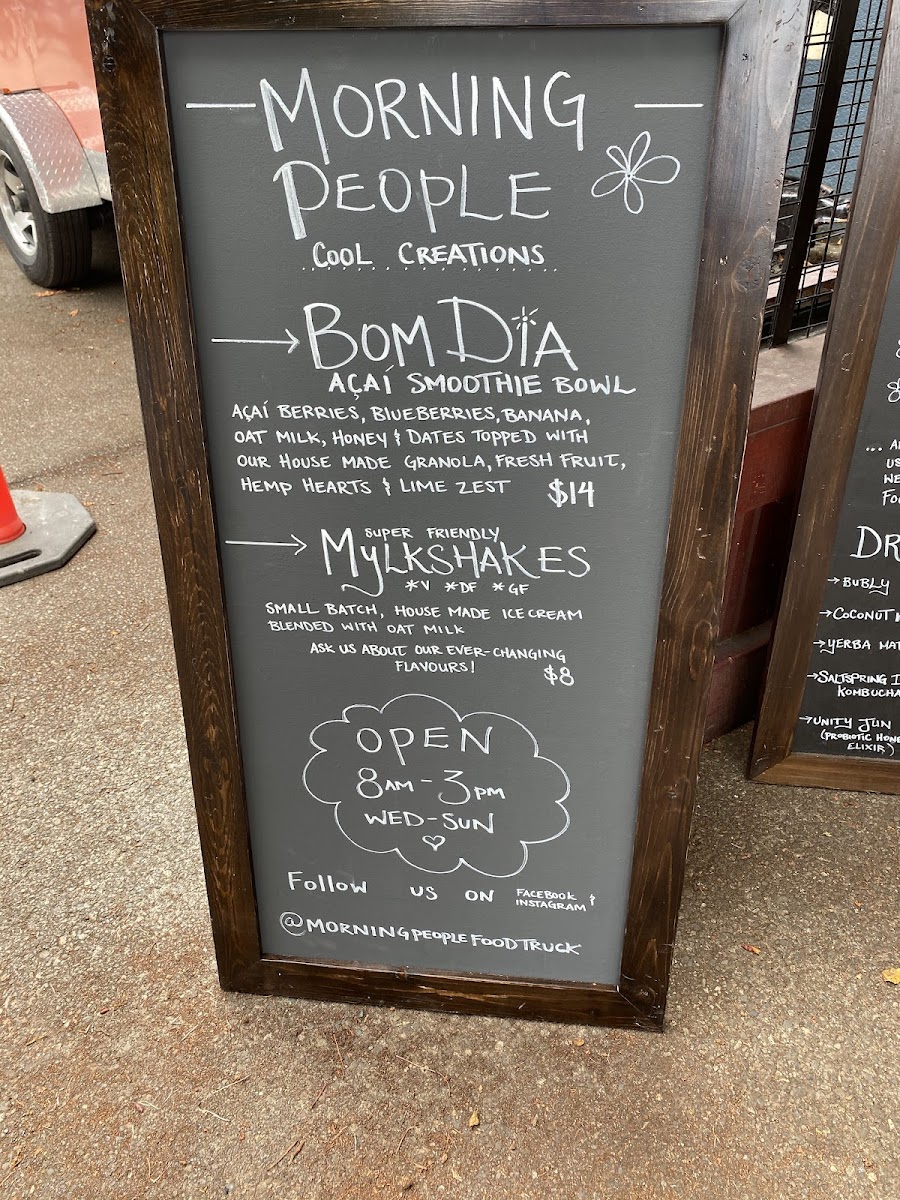 MORNING
PEOPLE
COOL CREATIONS
BOM DIA
AÇAÍ SMOOTHIE BOWL
AÇAÍ BERRIES, BLUEBERRIES, BANANA,
OAT MILK, HONEY & DATES TOPPED WITH
OUR HOUSE MADE GRANOLA, FRESH FRUIT,
HEMP HEARTS & LIME ZEST $14
SUPER FRIENDLY
MYLKSHAKES
*V *DF *GF
SMALL BATCH, HOUSE MADE ICE CREAM
BLENDED WITH OAT MILK
ASK US ABOUT OUR EVER-CHANGING
FLAVOURS! $8
OPEN
8AM-3PM
WED-SUN
Follow US ON FACEBOOK &
INSTAGRAM
@MORNINGPEOPLEFOODTRUCK
...
US
WE
DR
→BUBLY
→COCONUT
→YERBA MAT
→SALTSPRING
KOMBUCHA
→UNITY JUN
(PROBIOTIC HONE
ELIXIR)